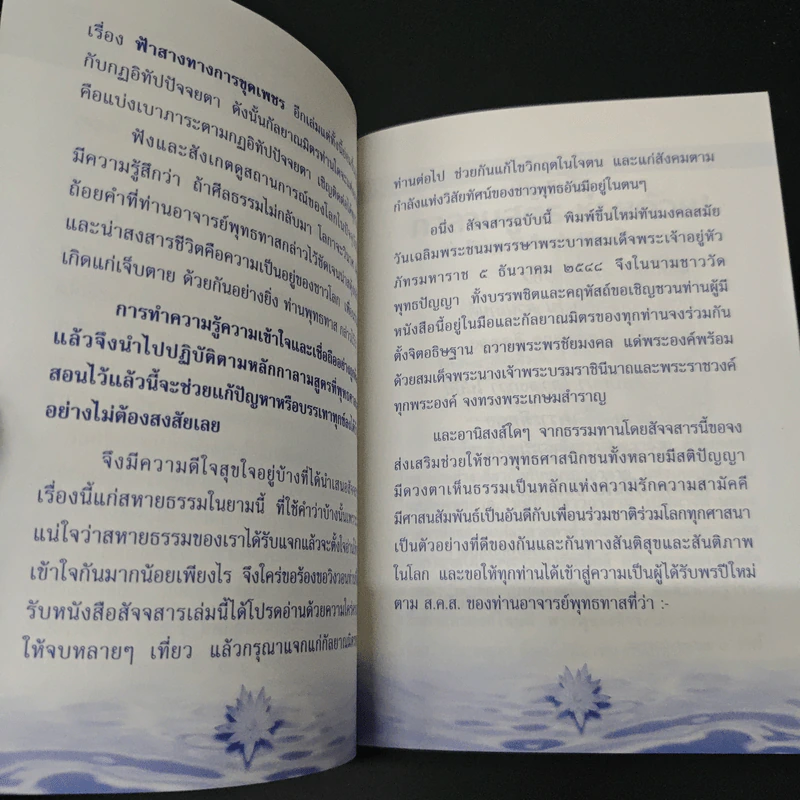 เรื่อง ฟ้าสางทางการขุดเพชร อีกเล่มแต่ทั้งนี้
กับกฎอิทัปปัจจยตา ดังนั้นกัลยาณมิตรท่านใด
คือแบ่งเบาภาระตามกฎอิทัปปัจจยตา เชิญติดต่อ
ฟังและสังเกตดูสถานการณ์ของโลกใน
มีความรู้สึกว่า ถ้าศีลธรรมไม่กลับมา โลกาจะวินาศ
ถ้อยคำที่ท่านอาจารย์พุทธทาสกล่าวไว้ชัดเจน
และน่าสงสารชีวิตคือความเป็นอยู่ของชาวโลก
เกิดแก่เจ็บตาย ด้วยกันอย่างยิ่ง ท่านพุทธทาส
การทำความรู้ความเข้าใจและเชื่อถืออย่าง
แล้วจึงนำไปปฏิบัติตามหลักกาลามสูตรที่พุทธ
สอนไว้แล้วนี้จะช่วยแก้ปัญหาหรือบรรเทาทุกข์
อย่างไม่ต้องสงสัยเลย
จึงมีความดีใจสุขใจอยู่บ้างที่ได้นำเสนอ
เรื่องนี้แก่สหายธรรมในยามนี้ ที่ใช้คำว่าบ้างนั้น
แน่ใจว่าสหายธรรมของเราได้รับแจกแล้วจะตั้งใจอ่าน
เข้าใจกันมากน้อยเพียงไร จึงใคร่ขอร้องขอวิงวอน
รับหนังสือสัจจสารเล่มนี้ได้โปรดอ่านด้วยความ
ให้จบหลายๆ เที่ยว แล้วกรุณาแจกแก่กัลยาณมิตร
ท่านต่อไป ช่วยกันแก้ไขวิกฤตในใจตน และแก่สังคมตาม
กำลังแห่งวิสัยทัศน์ของชาวพุทธอันมีอยู่ในตนๆ
อนึ่ง สัจจสารฉบับนี้ พิมพ์ขึ้นใหม่ทันมงคลสมัย
วันเฉลิมพระชนมพรรษาพระบาทสมเด็จพระเจ้าอยู่หัว
ภัทรมหาราช ๕ ธันวาคม ๒๕๔๘ จึงในนามชาววัด
พุทธปัญญา ทั้งบรรพชิตและคฤหัสถ์ขอเชิญชวนท่านผู้มี
หนังสือนี้อยู่ในมือและกัลยาณมิตรของทุกท่านจงร่วมกัน
ตั้งจิตอธิษฐาน ถวายพระพรชัยมงคล แด่พระองค์พร้อม
ด้วยสมเด็จพระนางเจ้าพระบรมราชินีนาถและพระราชวงศ์
ทุกพระองค์ จงทรงพระเกษมสำราญ
และอานิสงส์ใดๆ จากธรรมทานโดยสัจจสารนี้ขอจง
ส่งเสริมช่วยให้ชาวพุทธศาสนิกชนทั้งหลายมีสติปัญญา
มีดวงตาเห็นธรรมเป็นหลักแห่งความรักความสามัคคี
มีศาสนสัมพันธ์เป็นอันดีกับเพื่อนร่วมชาติร่วมโลกทุกศาสนา
เป็นตัวอย่างที่ดีของกันและกันทางสันติสุขและสันติภาพ
ในโลก และขอให้ทุกท่านได้เข้าสู่ความเป็นผู้ได้รับพรปีใหม่
ตาม ส.ค.ส. ของท่านอาจารย์พุทธทาสที่ว่า :-